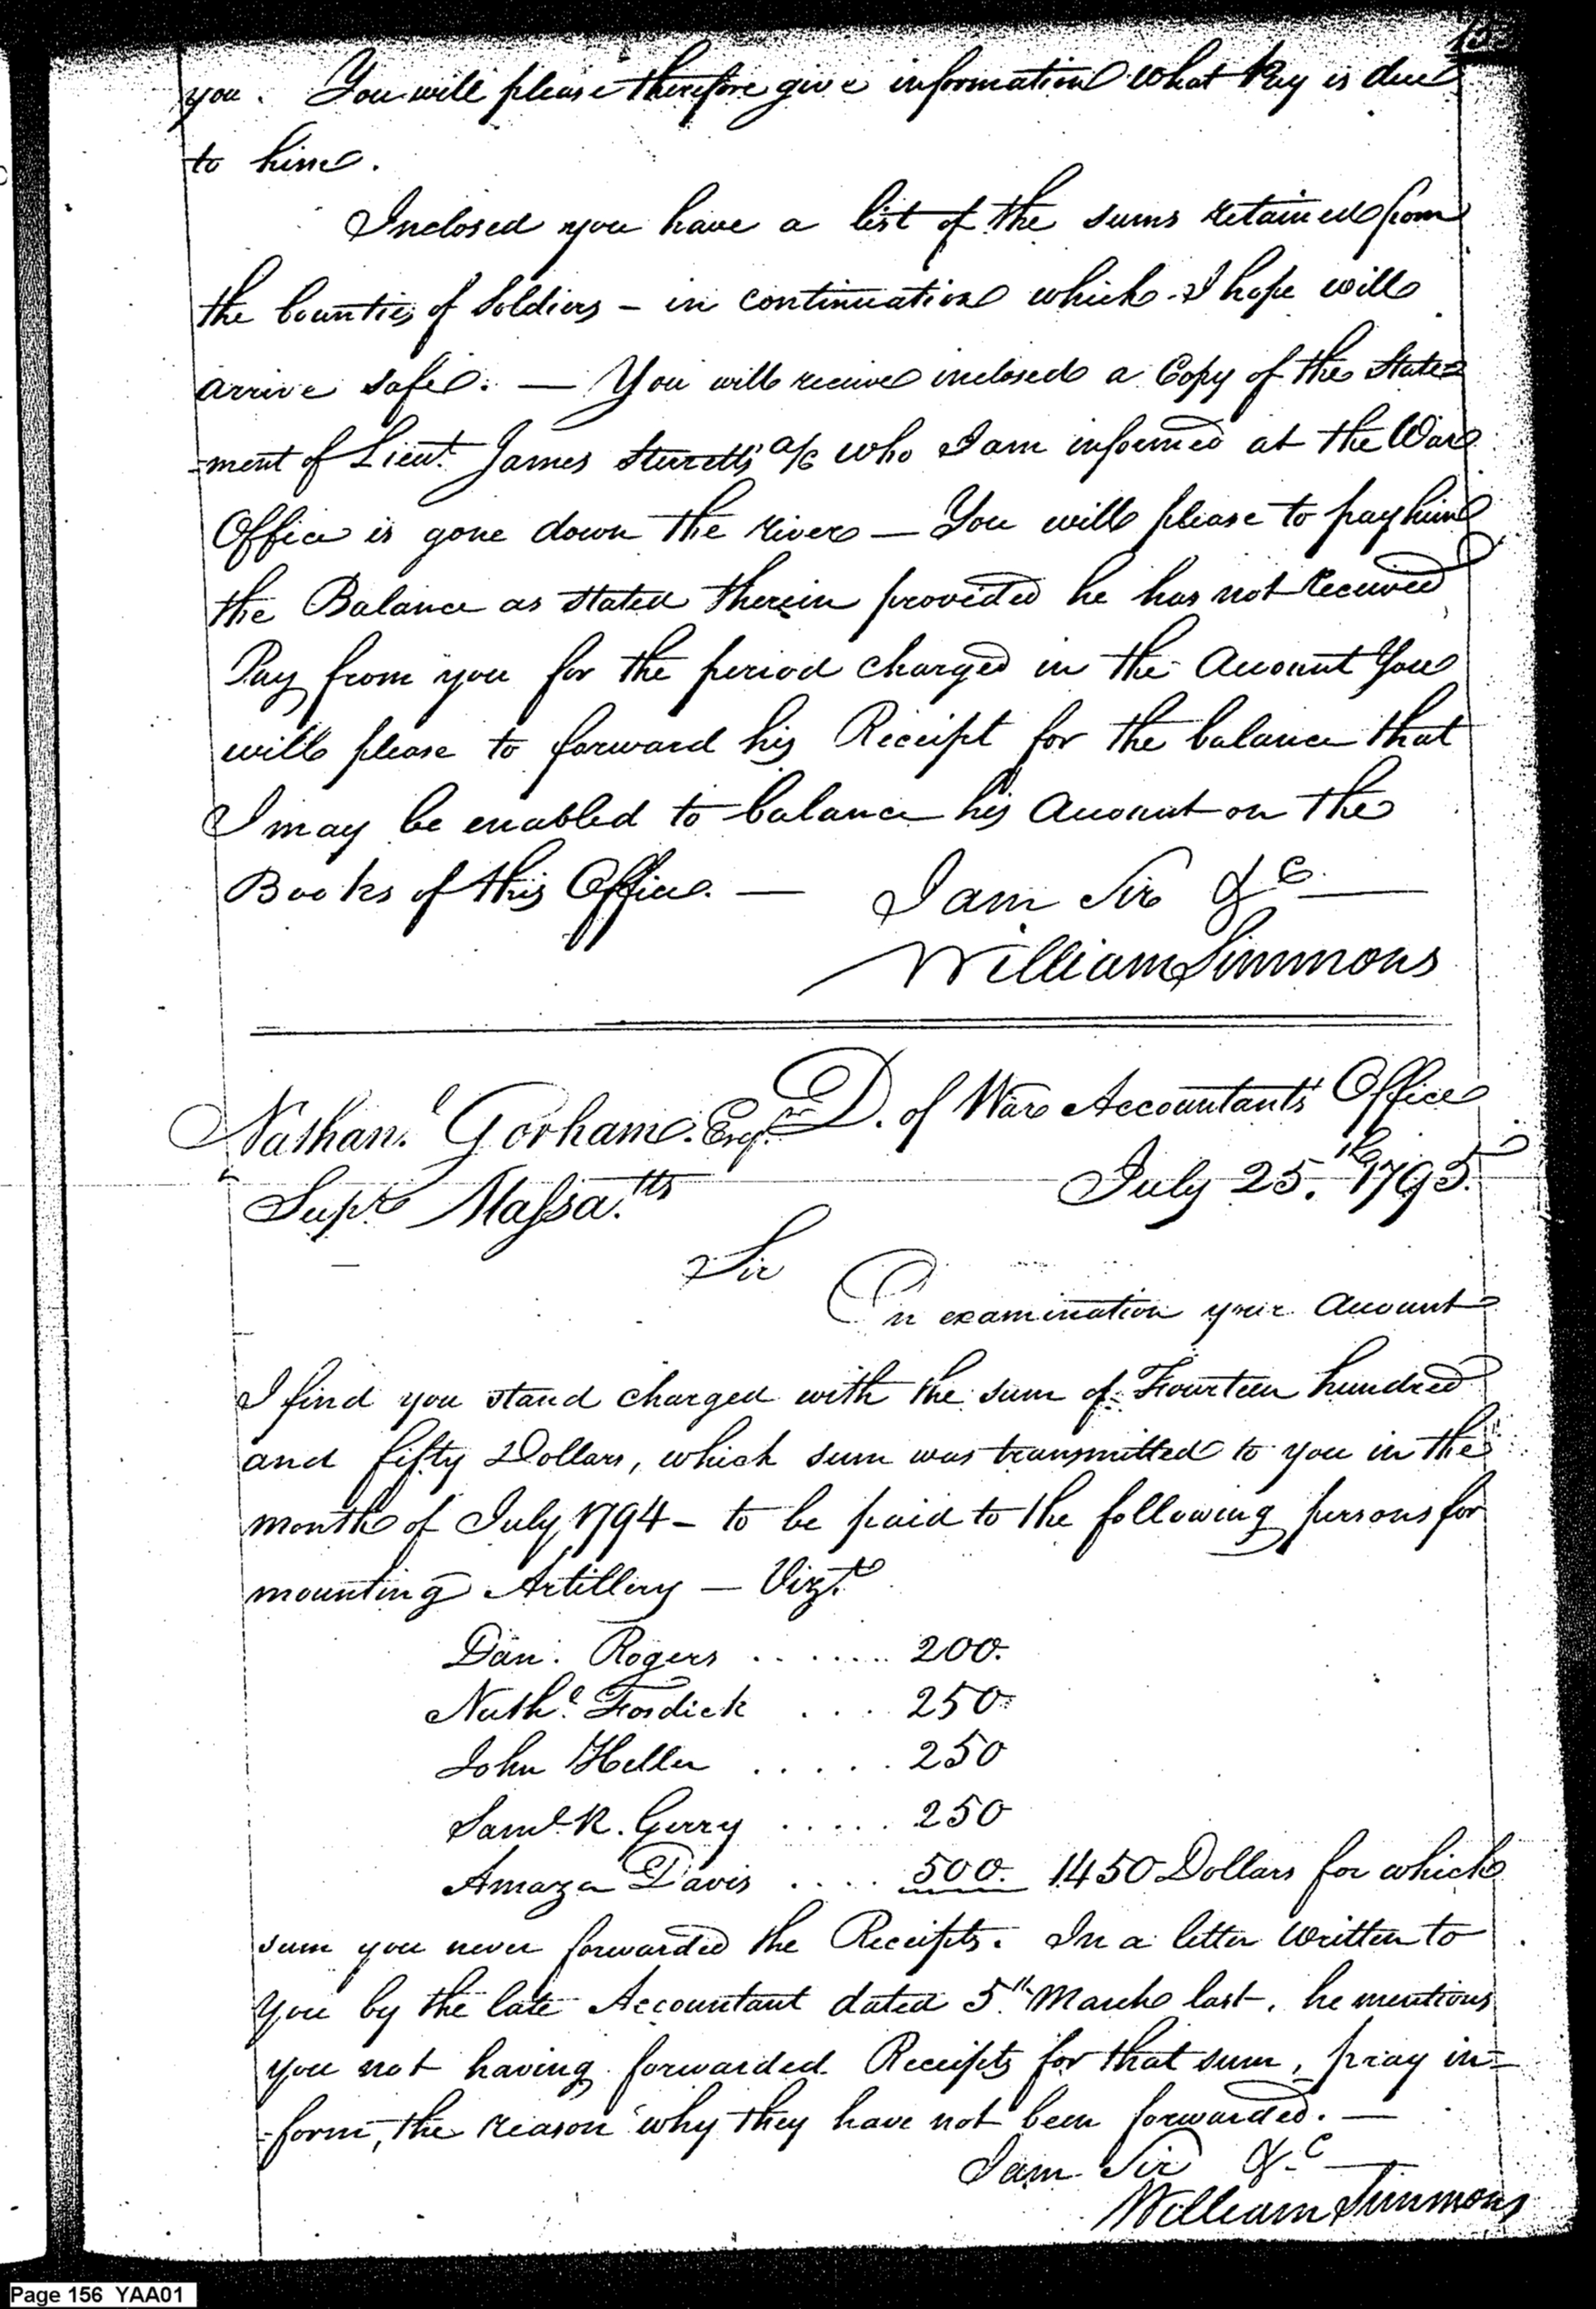 153
you. You will please therefore give information what Pay is due
to him.
Inclosed you have a list of the sums retained from
the bounties of Soldiers – in continuation which I hope will
arrive safe. — You will receive inclosed a Copy of the State=
=ment of Lieut. James Sterrett's a/c who I am informed at the War
Office is gone down the river — You will please to pay him
the Balance as stated therein provided he has not received
Pay from you for the period charged in the Account You
will please to forward his Receipt for the balance that
I may be enabled to balance his Account on the
Books of this Office. — I am Sir &c. —
William Simmons
Nathanl. Gorham. Esqr. D. of War Accountants Office
Supr. Massatts. July 25th. 1795.
Sir
On examination your Account
I find you stand charged with the sum of Fourteen hundred
and fifty Dollars, which sum was transmitted to you in the
month of July 1794 – to be paid to the following persons for
mounting Artillery — Vizt.
Dan: Rogers ....... 200.
Nathl. Fosdick .... 250.
John Heller ..... 250
Saml. R. Gerry ..... 250
Amaza Davis .... 500. 1450 Dollars for which
sum you never forwarded the Receipts. In a letter written to
you by the late Accountant dated 5th. March last, he mentions
you not having forwarded Receipts for that sum, pray in=
=form, the reason why they have not been forwarded. —
I am Sir &c —
William Simmons
Page 156 YAA01